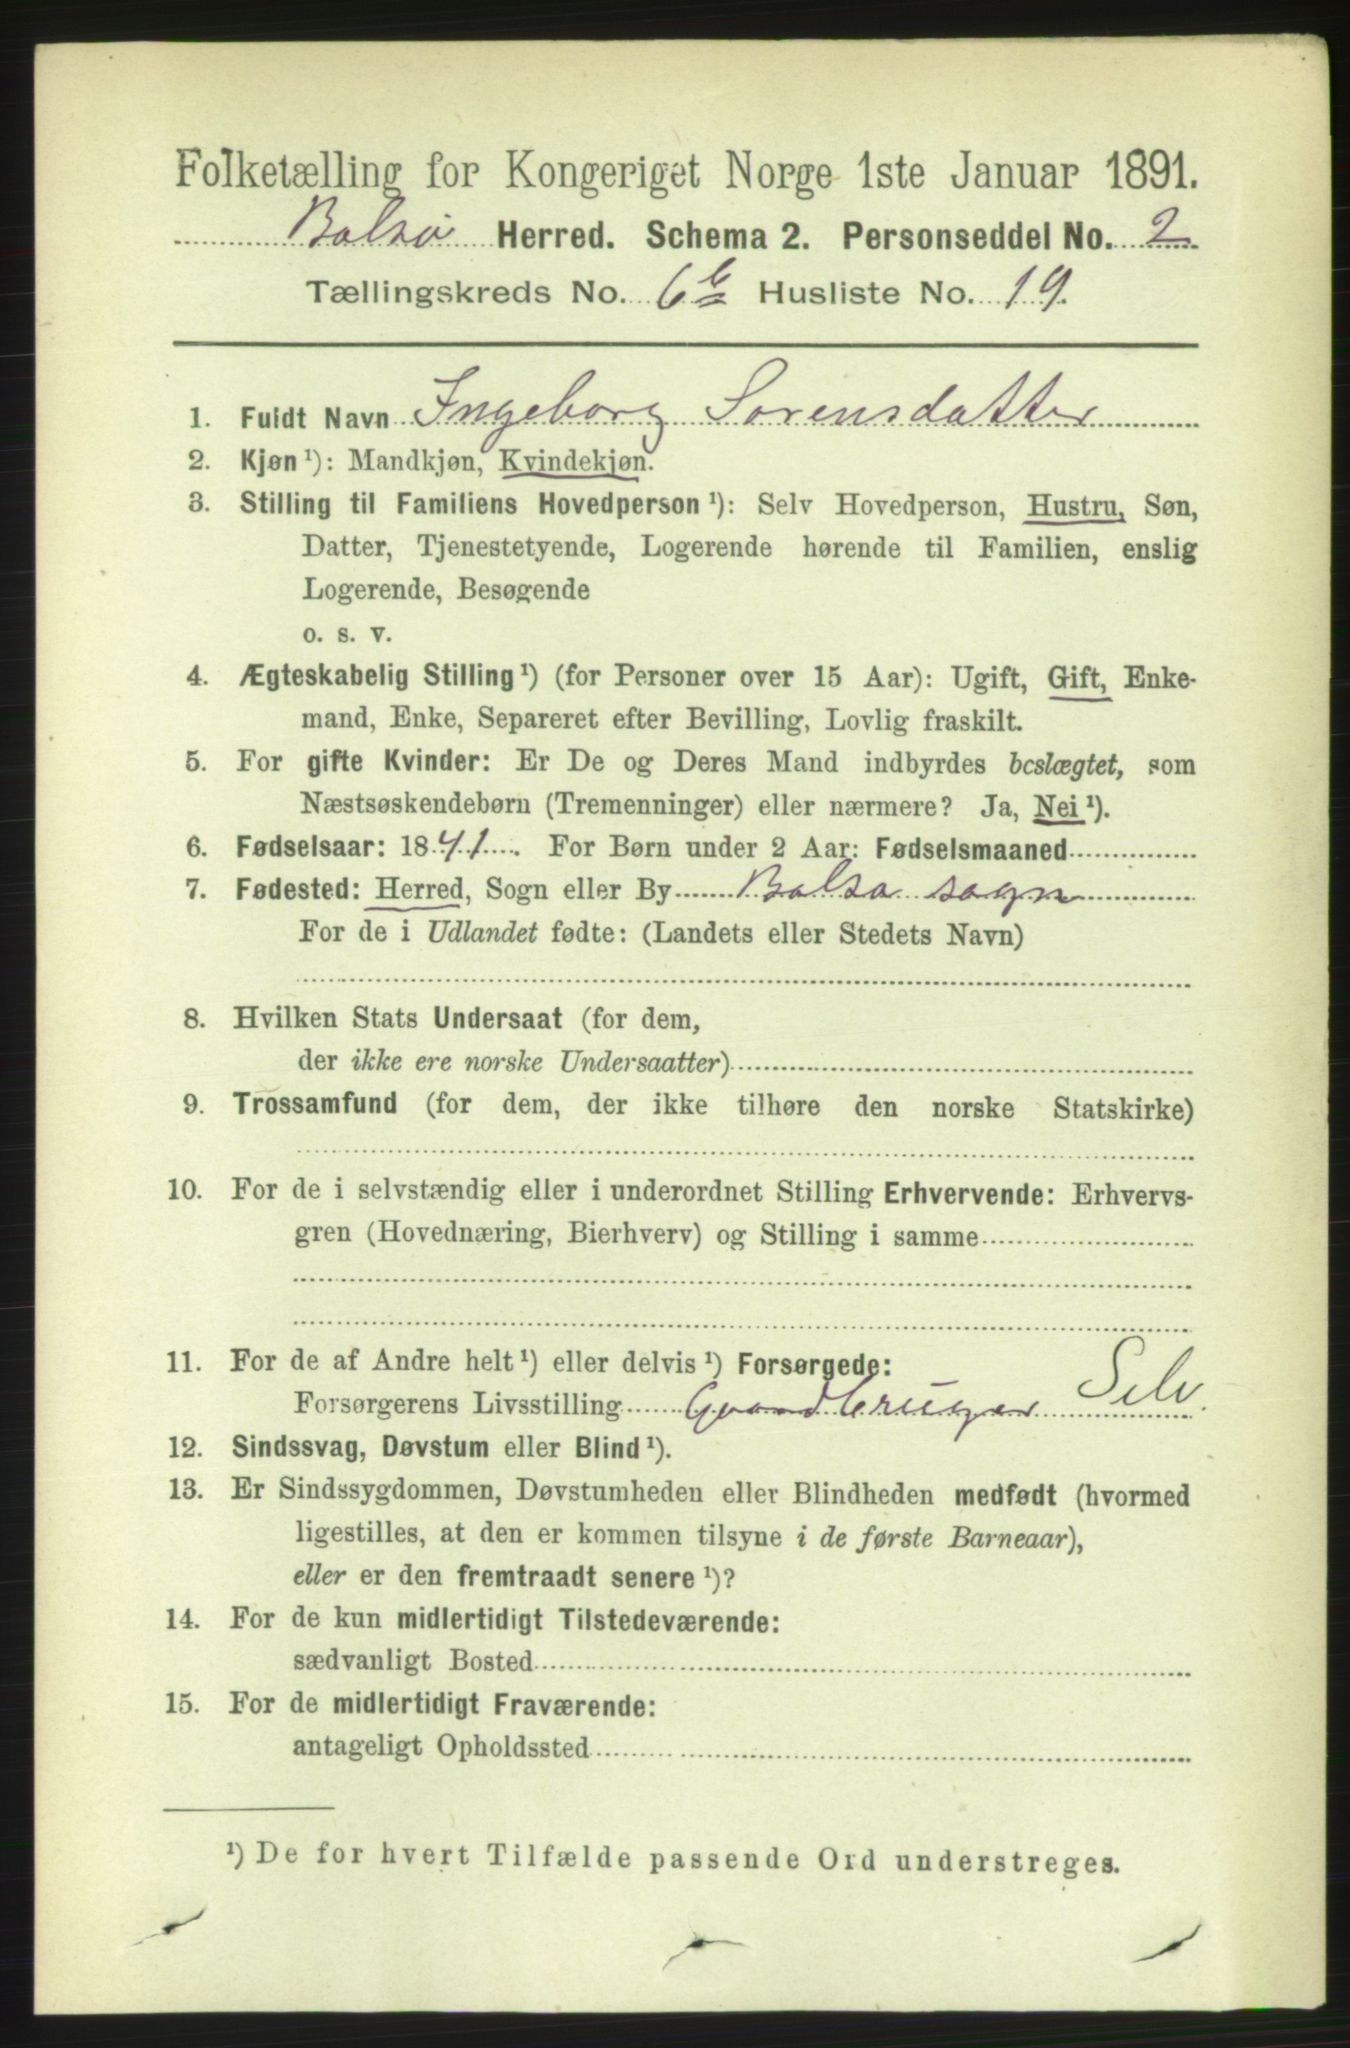 Folketælling for Kongeriget Norge 1ste Januar 1891.
Bolsø Herred. Schema 2. Personseddel No. 2
Tællingskreds No. 6b Husliste No. 19.
1. Fuldt Navn Ingeborg Sørensdatter
2. Kjøn ¹): Mandkjøn, Kvindekjøn.
3. Stilling til Familiens Hovedperson ¹): Selv Hovedperson, Hustru, Søn,
Datter, Tjenestetyende, Logerende hørende til Familien, enslig
Logerende, Besøgende
o. s. v.
4. Ægteskabelig Stilling ¹) (for Personer over 15 Aar): Ugift, Gift, Enke-
mand, Enke, Separeret efter Bevilling, Lovlig fraskilt.
5. For gifte Kvinder: Er De og Deres Mand indbyrdes beslægtet, som
Næstsøskendebørn (Tremenninger) eller nærmere? Ja, Nei ¹).
6. Fødselsaar: 1841. For Børn under 2 Aar: Fødselsmaaned
7. Fødested: Herred, Sogn eller By Bolsø sogn
For de i Udlandet fødte: (Landets eller Stedets Navn)
8. Hvilken Stats Undersaat (for dem,
der ikke ere norske Undersaatter)
9. Trossamfund (for dem, der ikke tilhøre den norske Statskirke)
10. For de i selvstændig eller i underordnet Stilling Erhvervende: Erhvervs-
gren (Hovednæring, Bierhverv) og Stilling i samme
11. For de af Andre helt ¹) eller delvis ¹) Forsørgede:
Forsørgerens Livsstilling Gaardbruger Selv.
12. Sindssvag, Døvstum eller Blind ¹).
13. Er Sindssygdommen, Døvstumheden eller Blindheden medfødt (hvormed
ligestilles, at den er kommen tilsyne i de første Barneaar),
eller er den fremtraadt senere ¹)?
14. For de kun midlertidigt Tilstedeværende:
sædvanligt Bosted
15. For de midlertidigt Fraværende:
antageligt Opholdssted
¹) De for hvert Tilfælde passende Ord understreges.